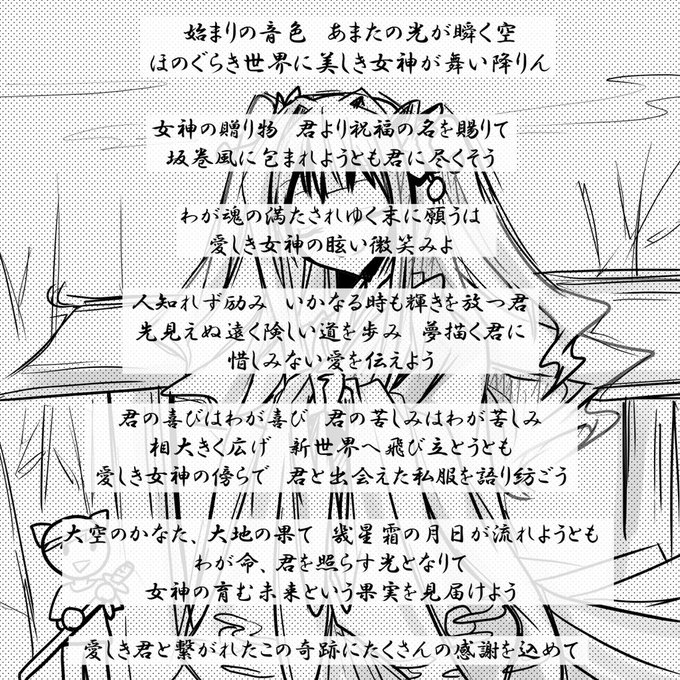 始まりの音色　あまたの光が瞬く空
ほのぐらき世界に美しき女神が舞い降りん
女神の贈り物　君より祝福の名を賜りて
坂巻風に包まれようとも君に尽くそう
わが魂の満たされゆく末に願うは
愛しき女神の眩い微笑みよ
人知れず励み　いかなる時も輝きを放つ君
先見えぬ遠く険しい道を歩み　夢描く君に
惜しみない愛を伝えよう
君の喜びはわが喜び　君の苦しみはわが苦しみ
相大きく広げ　新世界へ飛び立とうとも
愛しき女神の傍らで　君と出会えた私服を語り紡ごう
大空のかなた、大地の果て　幾星霜の月日が流れようとも
わが命、君を照らす光となりて
女神の育む未来という果実を見届けよう
愛しき君と繋がれたこの奇跡にたくさんの感謝を込めて